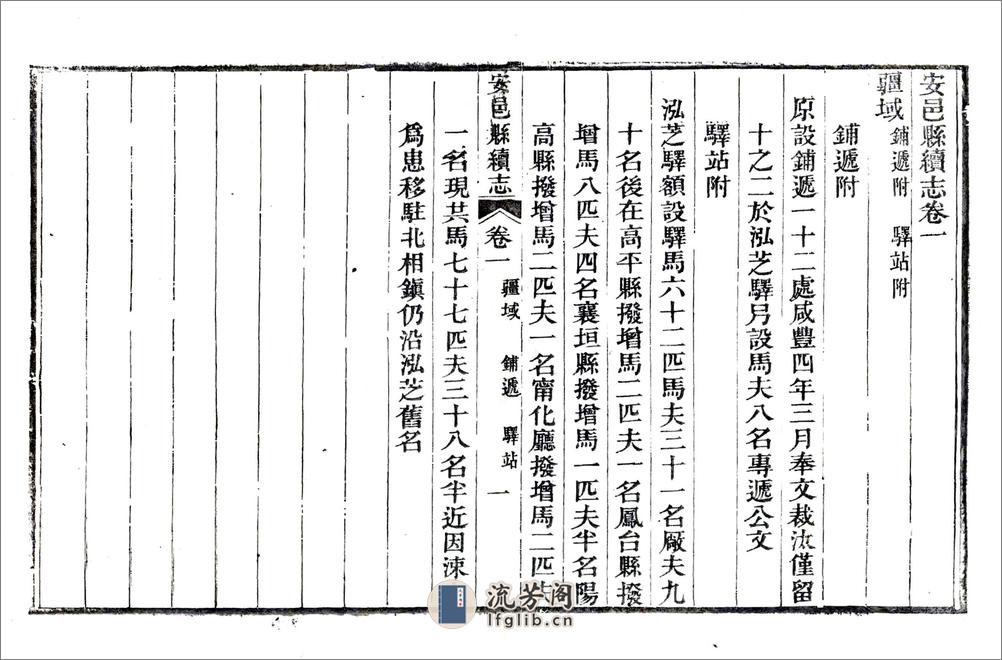 安邑縣續志卷一
疆域 鋪遞附 驛站附
鋪遞附
原設鋪遞一十二處咸豐四年三月奉文裁汰僅留
十之二於泓芝驛另設馬夫八名專遞公文
驛站附
泓芝驛額設驛馬六十二匹馬夫三十一名廠夫九
十名後在高平縣撥增馬二匹夫一名鳳台縣撥
增馬八匹夫四名襄垣縣撥增馬一匹夫半名陽
高縣撥增馬二匹夫一名甯化廳撥增馬二匹夫
安邑縣續志 卷一 疆域 鋪遞 驛站 一
一名現共馬七十七匹夫三十八名半近因涑
爲患移駐北相鎮仍沿泓芝舊名
流芳阁
lfglib.cn